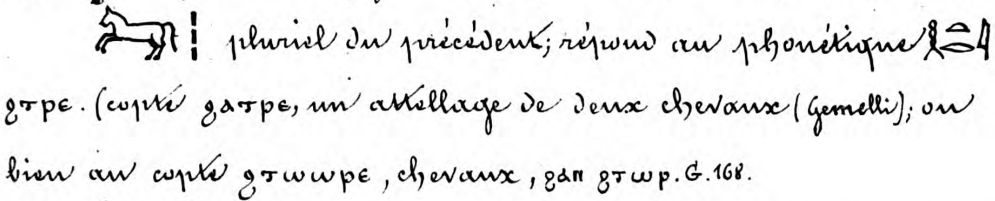 𓃗𓏪 pluriel du précédent; répond au phonétique 𓎛𓏏𓂋𓇋
ϩⲧⲣⲉ. (copte ϩⲁⲧⲣⲉ, un attellage de deux chevaux (Gemelli); ou
bien au copte ϩⲧⲱⲱⲣⲉ, chevaux, ϩⲁⲛ ϩⲧⲱⲣ. G.168.